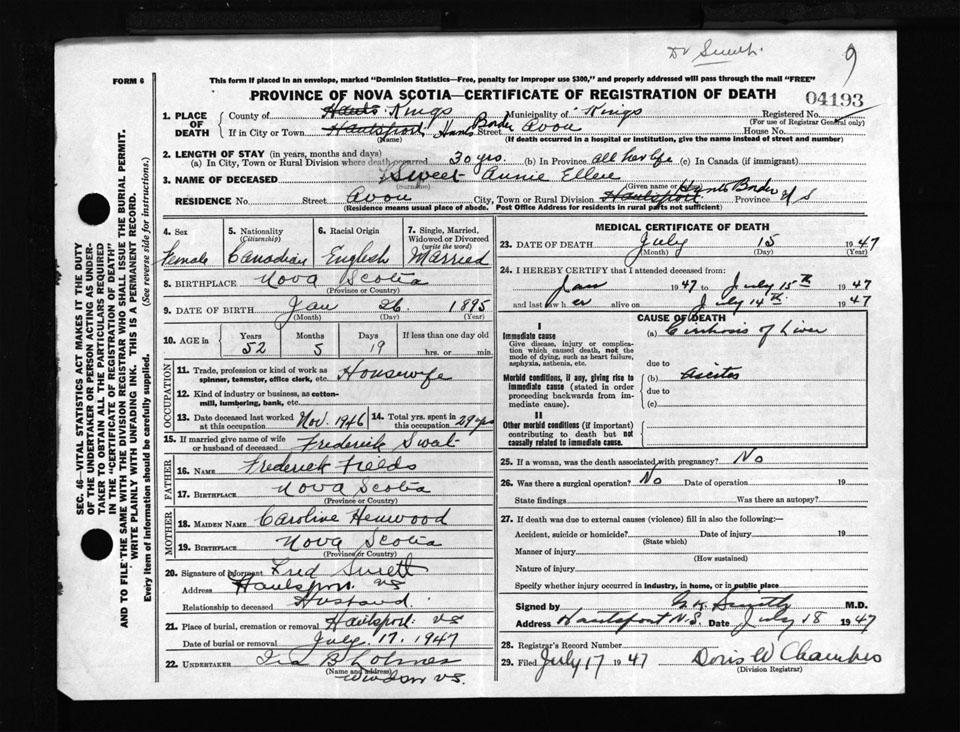 Dr Smith.
9
FORM 6
This form if placed in an envelope, marked "Dominion Statistics—Free, penalty for improper use $300," and properly addressed will pass through the mail "FREE"
PROVINCE OF NOVA SCOTIA—CERTIFICATE OF REGISTRATION OF DEATH
04193
1. PLACE OF DEATH
County of Hants Kings Municipality of Kings Registered No.
(For use of Registrar General only)
If in City or Town Hantsport Hants Border Street Avon House No.
(Name) (If death occurred in a hospital or institution, give the name instead of street and number)
2. LENGTH OF STAY (in years, months and days)
(a) In City, Town or Rural Division where death occurred 30 yrs. (b) In Province all her life (c) In Canada (if immigrant)
3. NAME OF DECEASED Sweet Annie Ellen
(Surname) (Given name or names)
RESIDENCE No. Street Avon City, Town or Rural Division Hantsport Hants Border Province N S
(Residence means usual place of abode. Post Office Address for residents in rural parts not sufficient)
4. Sex Female
5. Nationality (Citizenship) Canadian
6. Racial Origin English
7. Single, Married, Widowed or Divorced (write the word) Married
8. BIRTHPLACE Nova Scotia
(Province or Country)
9. DATE OF BIRTH Jan 26 1895
(Month) (Day) (Year)
10. AGE in Years 52 Months 5 Days 19 If less than one day old hrs. or min.
OCCUPATION
11. Trade, profession or kind of work as spinner, teamster, office clerk, etc. Housewife
12. Kind of industry or business, as cotton-mill, lumbering, bank, etc.
13. Date deceased last worked at this occupation Nov. 1946
14. Total yrs. spent in this occupation 29 yrs
15. If married give name of wife or husband of deceased Frederick Swet
FATHER
16. NAME Frederick Fields
17. BIRTHPLACE Nova Scotia
(Province or Country)
MOTHER
18. MAIDEN NAME Caroline Henwood
19. BIRTHPLACE Nova Scotia
(Province or Country)
20. Signature of Informant Fred Swett
Address Hantsport NS
Relationship to deceased Husband.
21. Place of burial, cremation or removal Hantsport NS
Date of burial or removal July. 17. 1947
22. UNDERTAKER Ira B Lohnes
(Name and address)
Windsor NS.
MEDICAL CERTIFICATE OF DEATH
23. DATE OF DEATH July 15 1947
(Month) (Day) (Year)
24. I HEREBY CERTIFY that I attended deceased from:
Jan 1947 to July 15th 1947
and last saw h er alive on July 14th 1947
CAUSE OF DEATH
I
Immediate cause
Give disease, injury or complication which caused death, not the mode of dying, such as heart failure, asphyxia, asthenia, etc.
(a) Cirrhosis of Liver
due to
Morbid conditions, if any, giving rise to immediate cause (stated in order proceeding backwards from immediate cause).
(b) Ascites
due to
(c)
II
Other morbid conditions (if important) contributing to death but not causally related to immediate cause.
25. If a woman, was the death associated with pregnancy? No
26. Was there a surgical operation? No Date of operation 19
State findings Was there an autopsy?
27. If death was due to external causes (violence) fill in also the following:—
Accident, suicide or homicide? Date of injury 19
(State which)
Manner of injury
(How sustained)
Nature of injury
Specify whether injury occurred in industry, in home, or in public place
Signed by G K Smith M.D.
Address Hantsport N.S. Date July 18 1947
28. Registrar's Record Number
29. Filed July 17 1947 Doris W Chambers
(Division Registrar)
SEC. 46—VITAL STATISTICS ACT MAKES IT THE DUTY
OF THE UNDERTAKER OR PERSON ACTING AS UNDER-
TAKER TO OBTAIN ALL THE PARTICULARS REQUIRED
IN THE "CERTIFICATE OF REGISTRATION OF DEATH"
AND TO FILE THE SAME WITH THE DIVISION REGISTRAR WHO SHALL ISSUE THE BURIAL PERMIT.
WRITE PLAINLY WITH UNFADING INK. THIS IS A PERMANENT RECORD.
Every item of information should be carefully supplied. (See reverse side for instructions.)